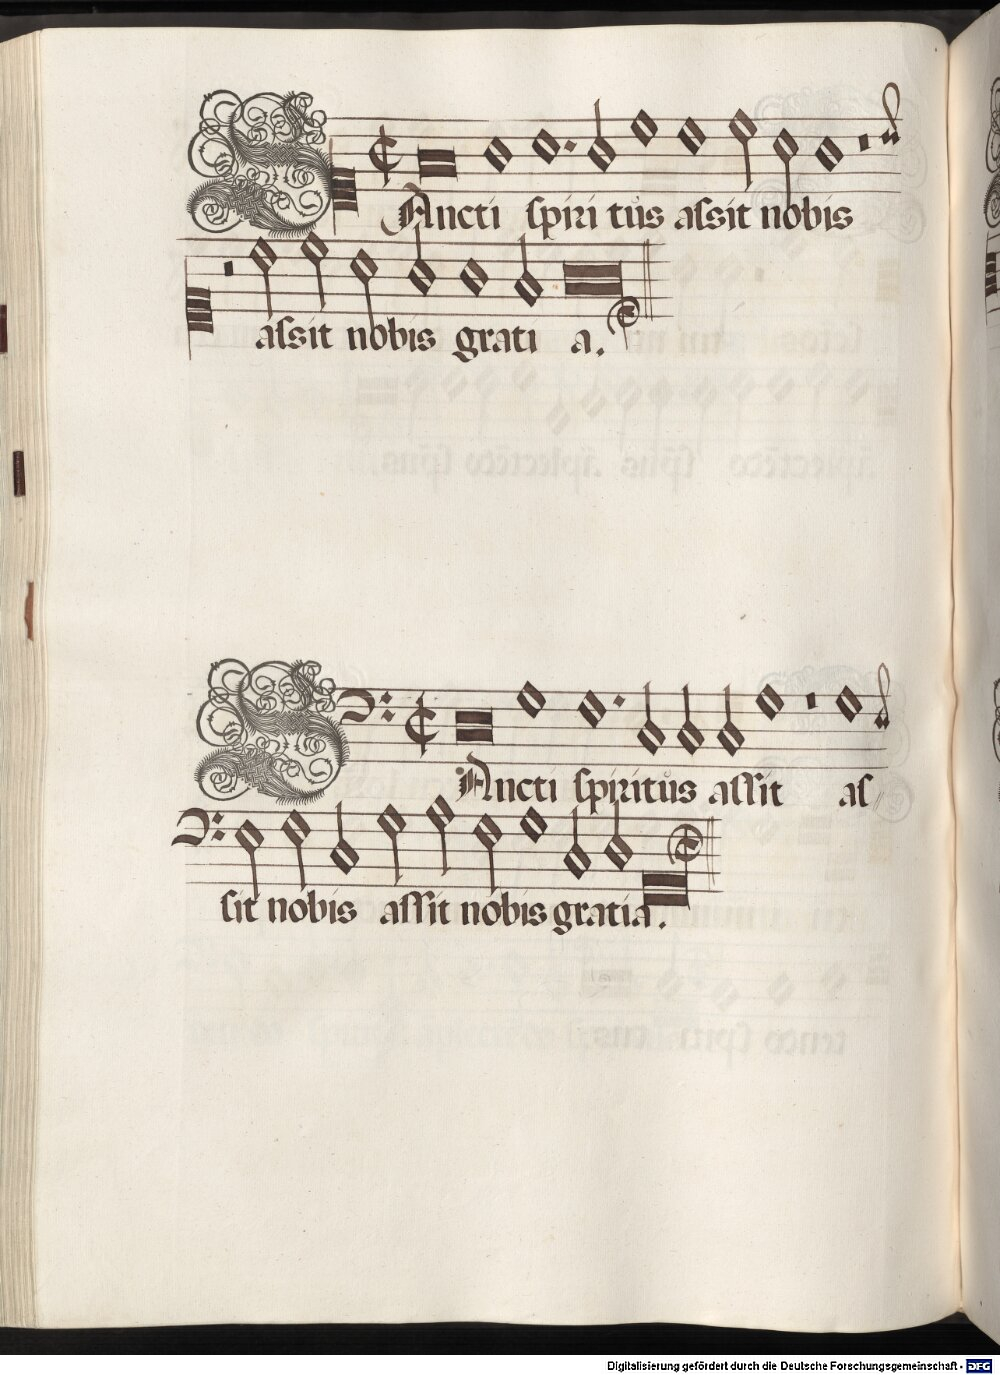 SAncti spiri tus assit nobis
assit nobis grati a.
SAncti spiritus assit as/
sit nobis assit nobis gratia.
Digitalisierung gefördert durch die Deutsche Forschungsgemeinschaft - DFG